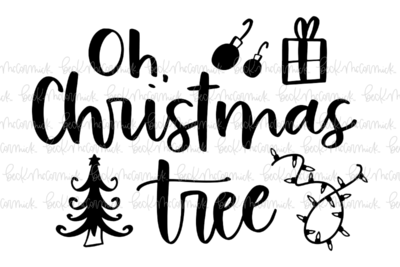 Oh,
Christmas
tree